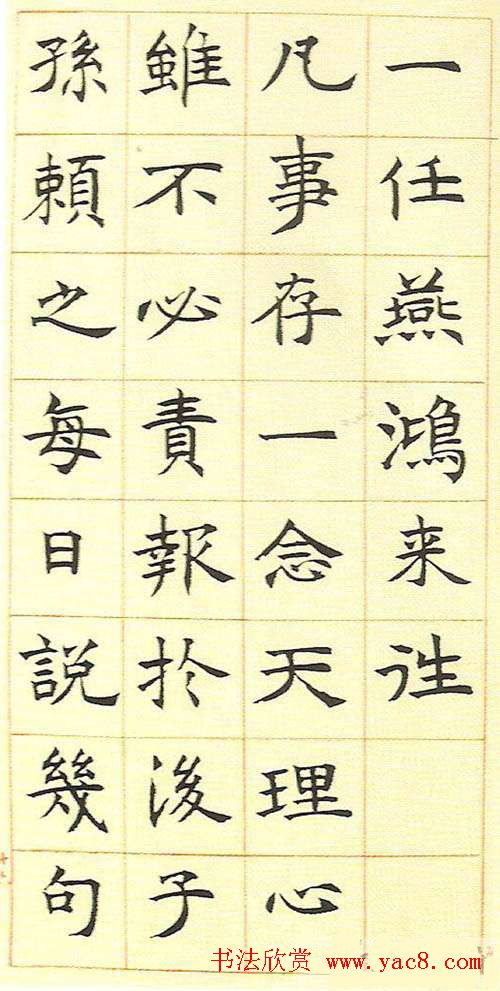 一任燕鴻来往
凡事存一念天理心
雖不必責報於後子
孫頼之每日説幾句
书法欣赏 www.yac8.com